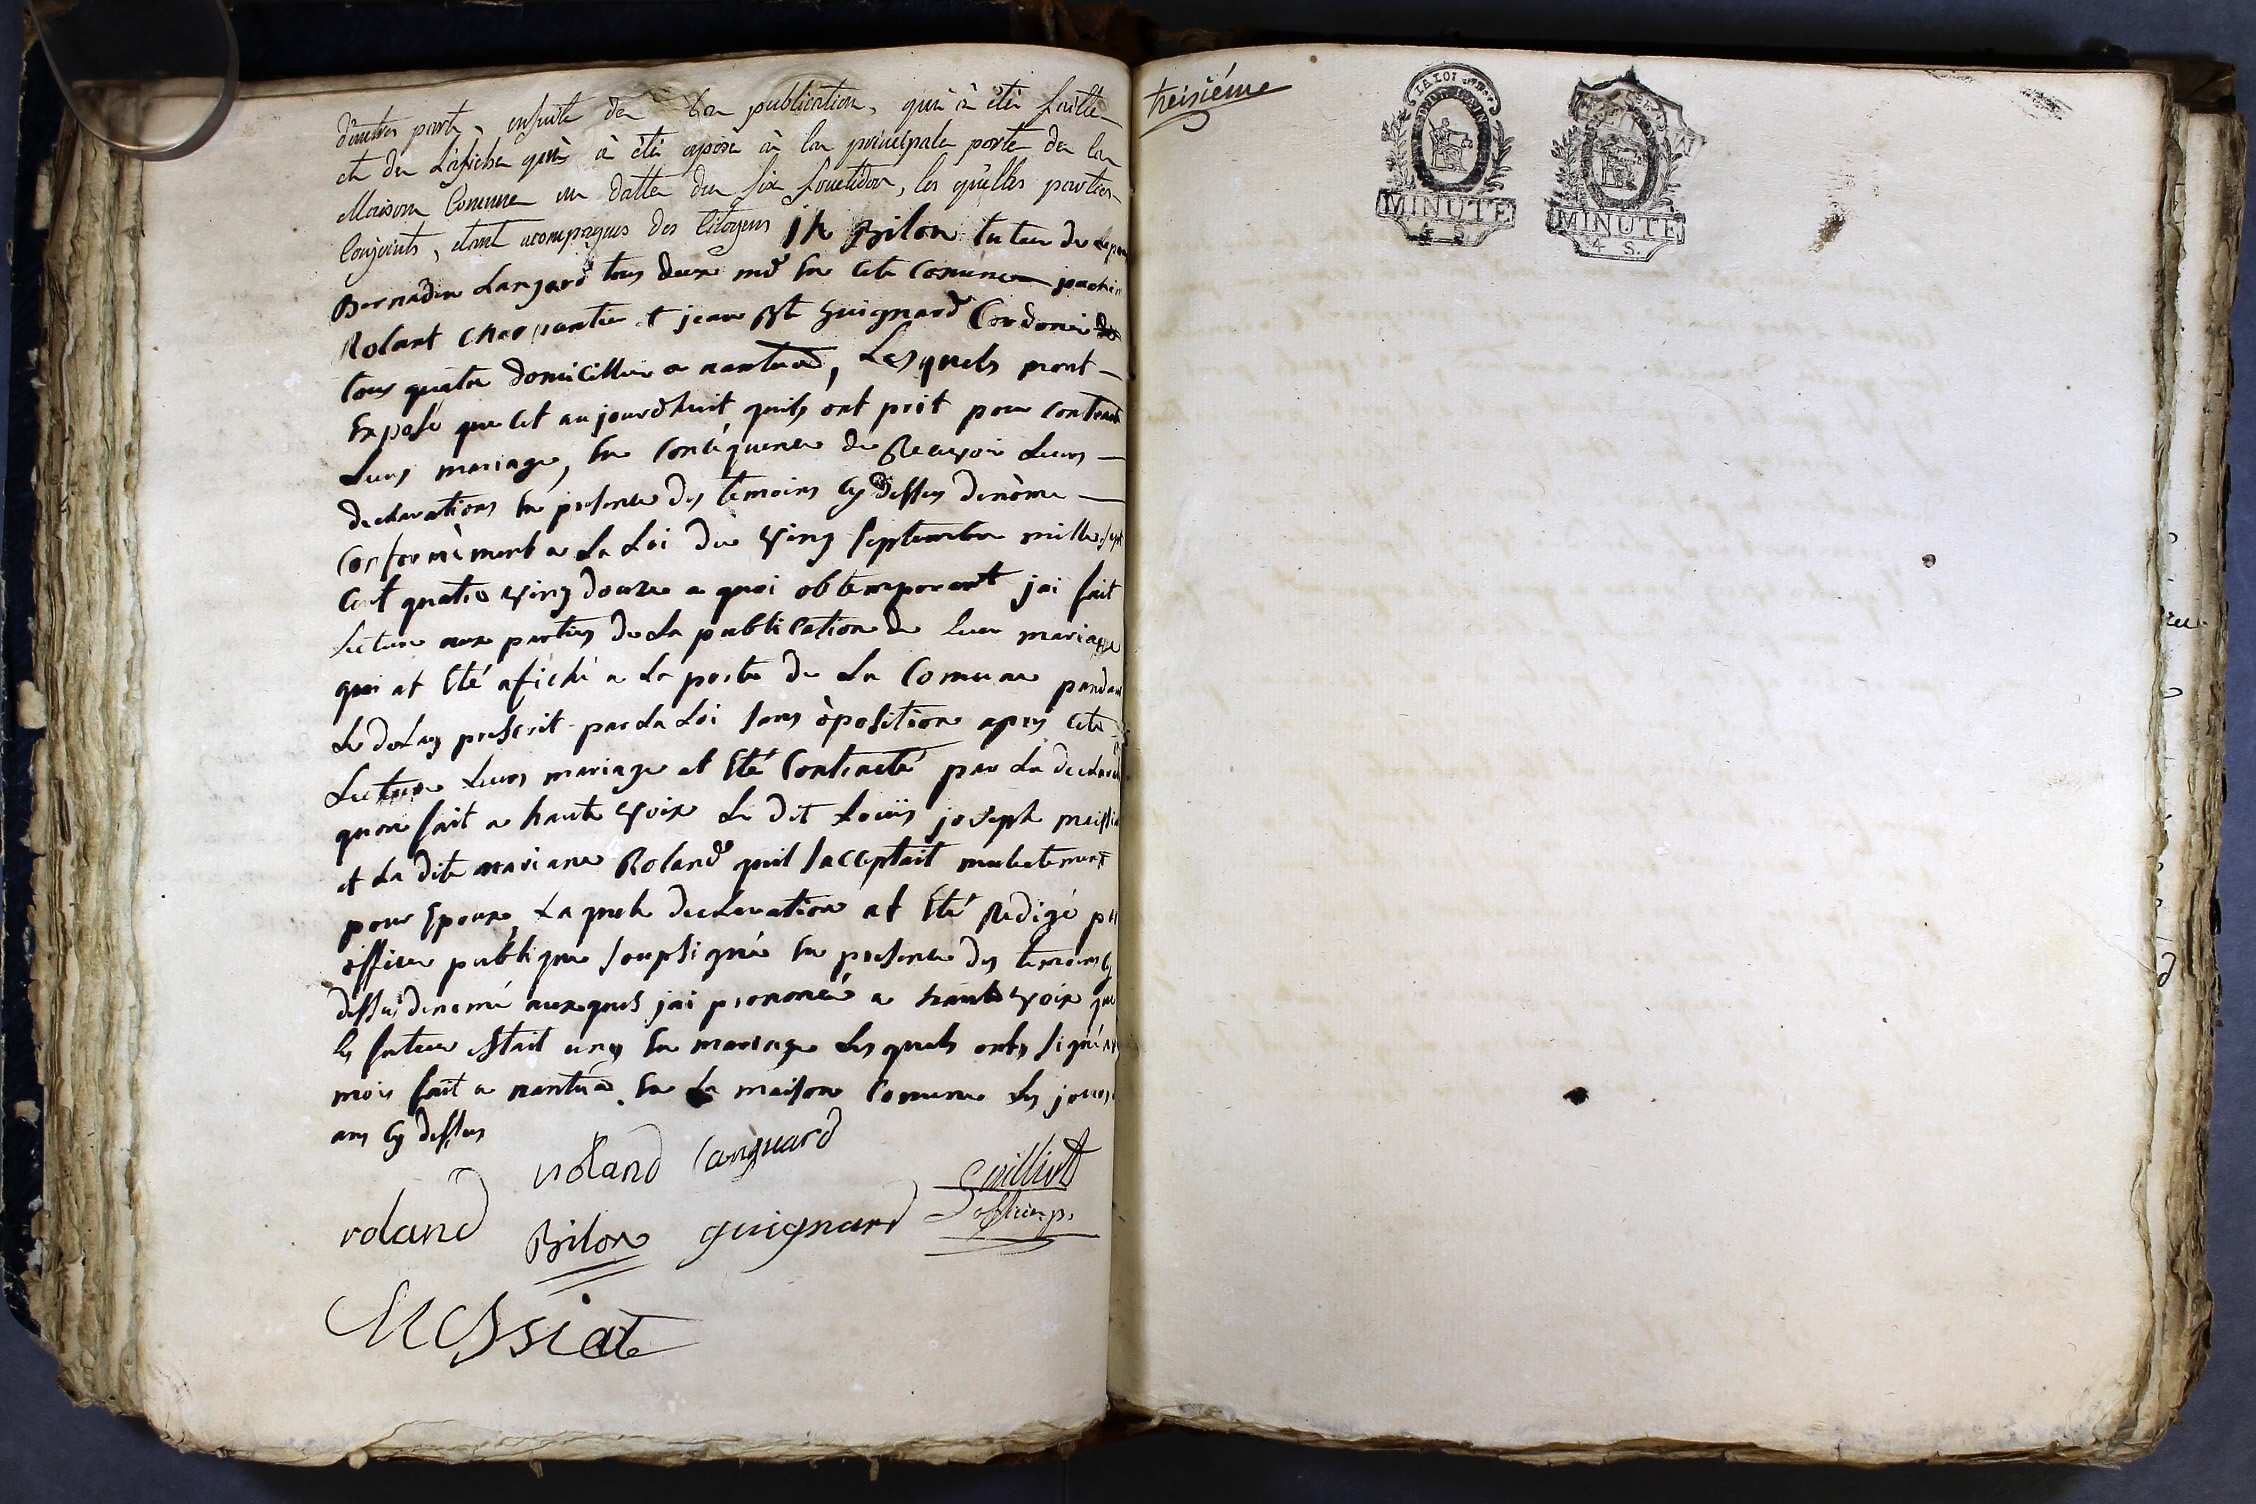 d'autre part, ensuite de la publication, qui à été faitte
et de L'afiche qui à été aposé à la principale porte de la
Maison Comune en datte du six fructidor, les quelles parties
Conjoints, étant acompagnés des Citoyens j h Bilon tuteur de
Bernadin Langard tous deux md En Cete Comune
Rolant charpantie et jean Bte Guignard Cordonié
tous quatre domicillies a nantua, Lesquels mont
Exposé que Cet aujourdhuit quils ont prit pour Contracté
Leurs mariage, En Conséquence de Recevoir Leurs
declarations En presence des temoins Cy dessus denòme
Conformèment a La Loi du Ving septembre mille sept
Cent quatre Ving douze a quoi obtemporant jai fait
Lecture aux parties de La publication de leur mariage
qui at Eté afiché a La porte de La Comune pandant
Le delay prescrit par La Loi sans òposition apres Cete
Lecture Leurs mariage at Eté Contracté par La
quon fait a haute Voix Le dit Loüis joseph
et La dite mariane Roland quil sacceptait
pour Epoux, Laquele declaration at Eté Redigé
officier publique soupsigné En presence des temoins Cy
dessus denomé auxquels jai prononcé a haute Voix que
les futeur Etait uny En mariage Les quels onts signé
mois fait a nantua En La maison Comune Les jours
ans Cy dessus
roland Languard
roland Bilon guignard
Messiat
treisiéme
LA LOI
MINUTE
4 S.
MINUTE
4 S.